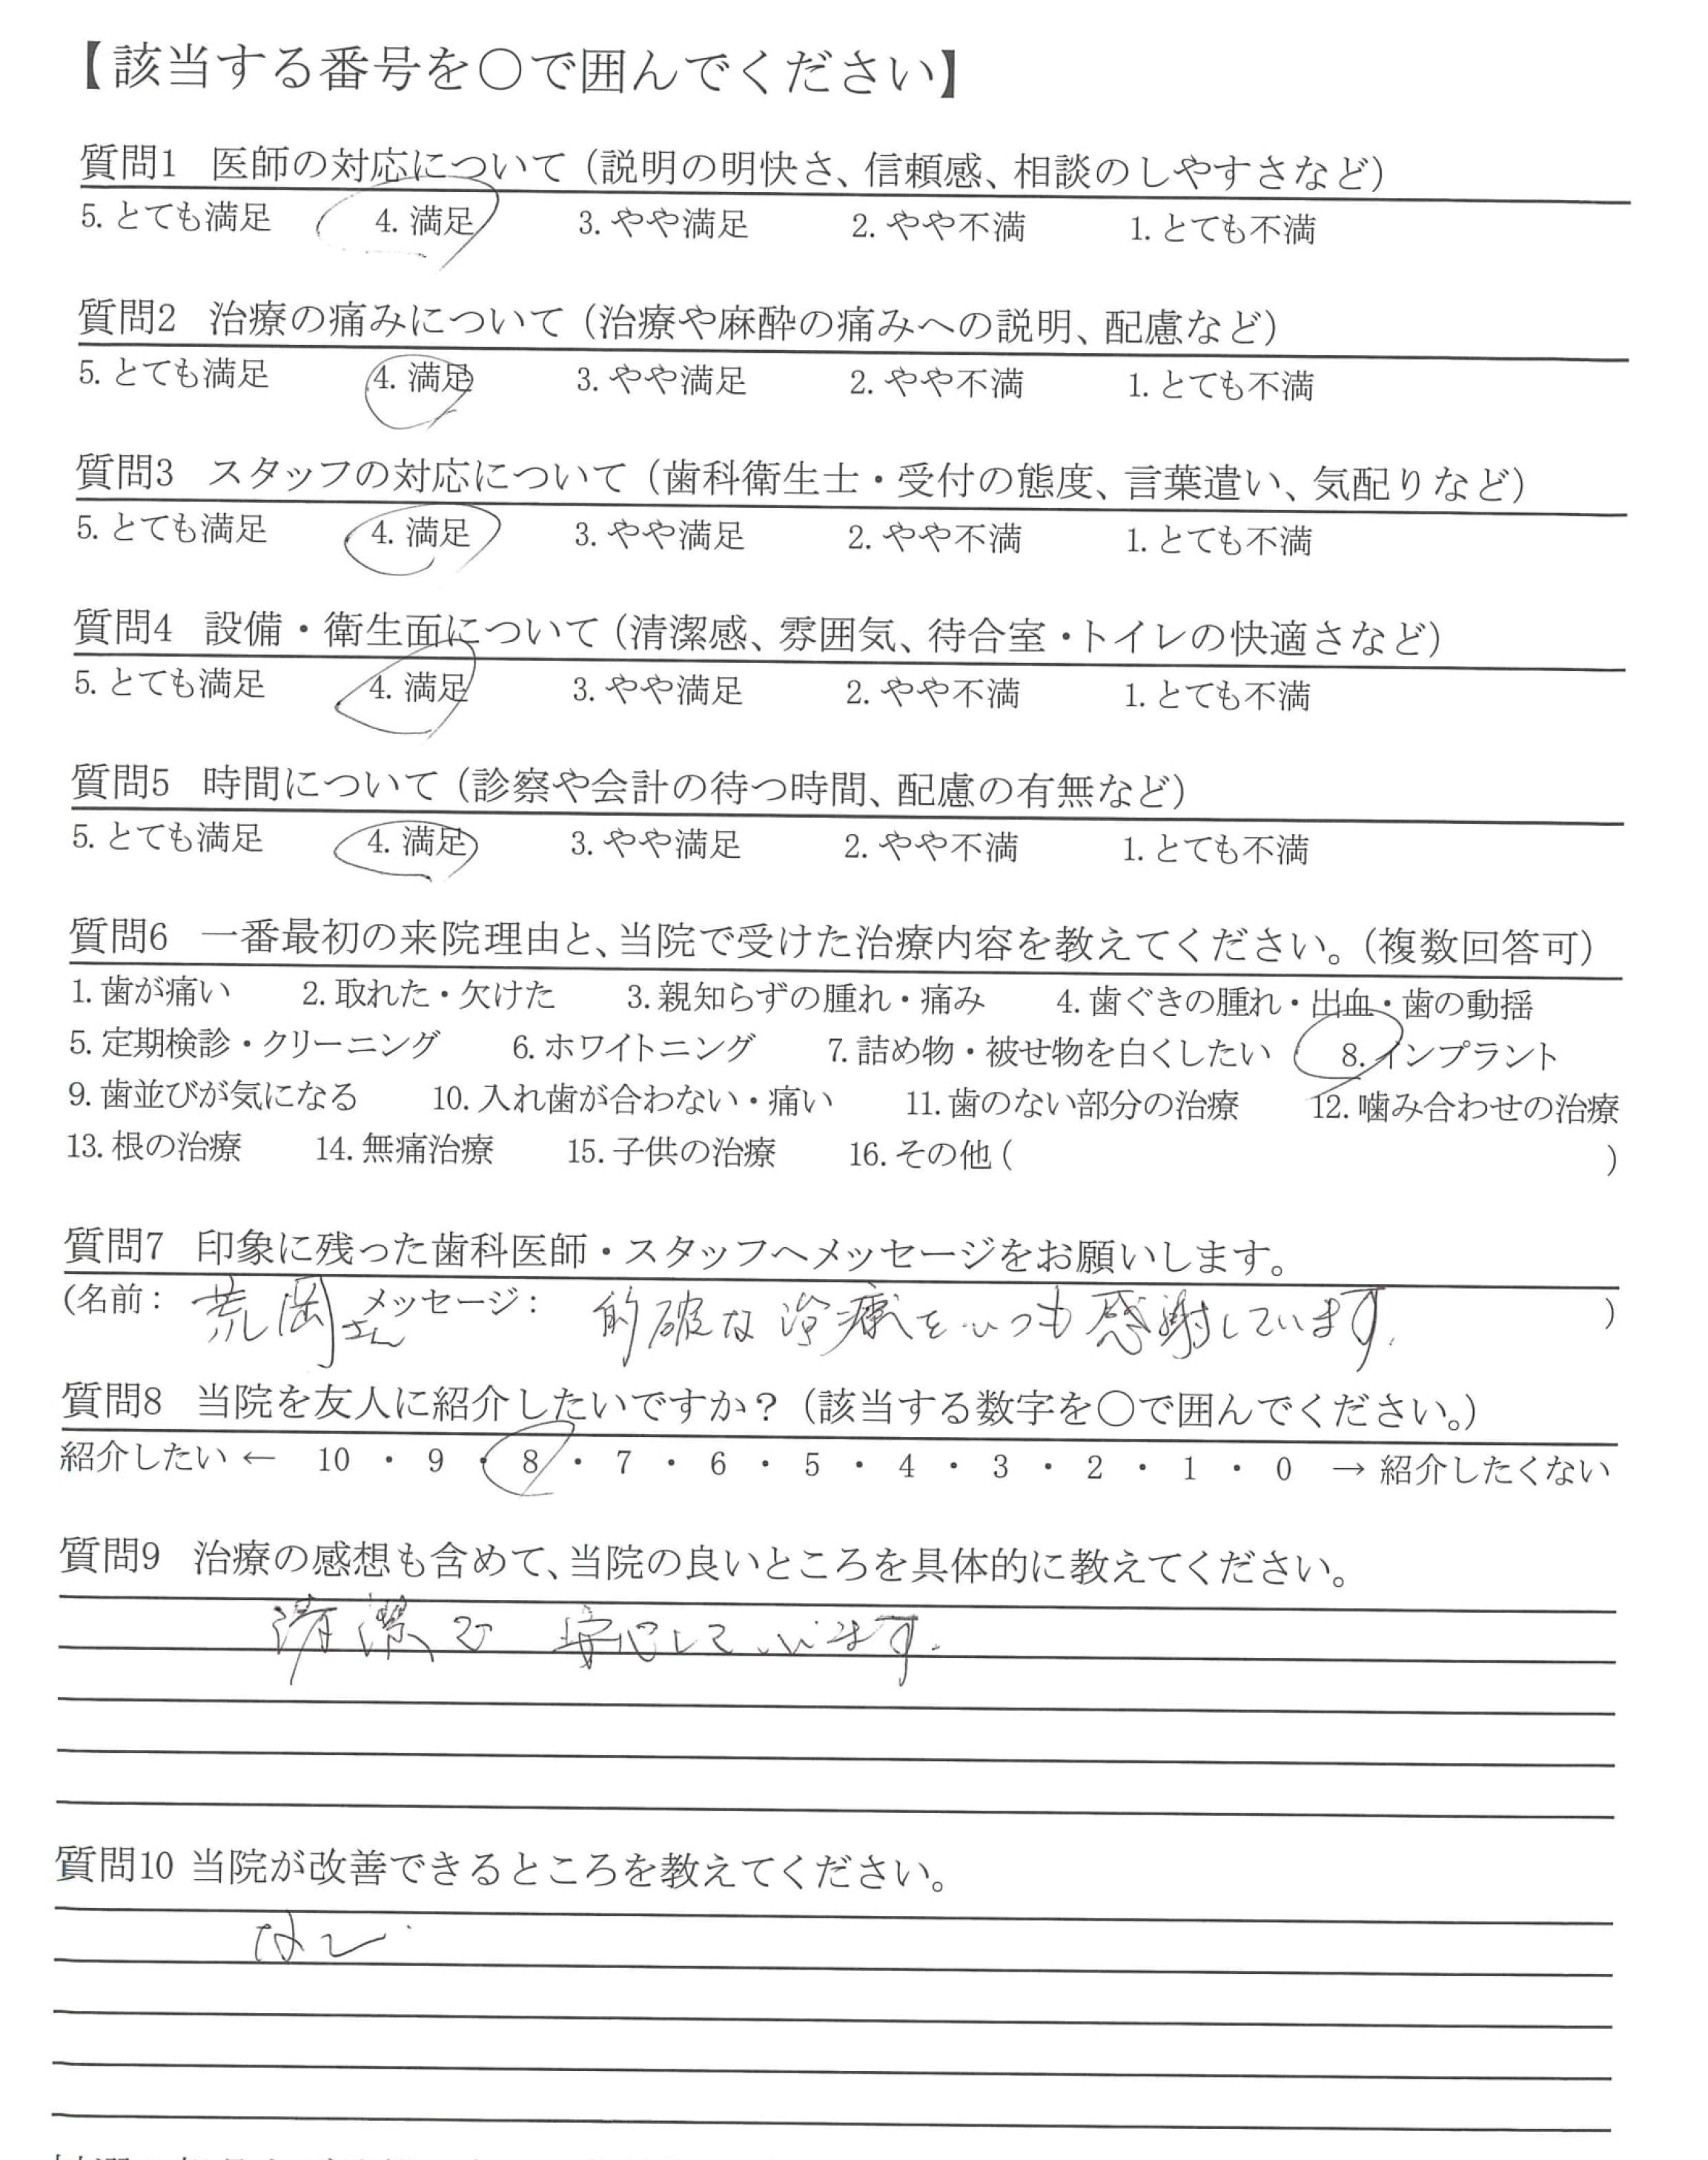 【該当する番号を○で囲んでください】
質問1 医師の対応について（説明の明快さ、信頼感、相談のしやすさなど）
5. とても満足 4. 満足 3. やや満足 2. やや不満 1. とても不満
質問2 治療の痛みについて（治療や麻酔の痛みへの説明、配慮など）
5. とても満足 4. 満足 3. やや満足 2. やや不満 1. とても不満
質問3 スタッフの対応について（歯科衛生士・受付の態度、言葉遣い、気配りなど）
5. とても満足 4. 満足 3. やや満足 2. やや不満 1. とても不満
質問4 設備・衛生面について（清潔感、雰囲気、待合室・トイレの快適さなど）
5. とても満足 4. 満足 3. やや満足 2. やや不満 1. とても不満
質問5 時間について（診察や会計の待つ時間、配慮の有無など）
5. とても満足 4. 満足 3. やや満足 2. やや不満 1. とても不満
質問6 一番最初の来院理由と、当院で受けた治療内容を教えてください。（複数回答可）
1. 歯が痛い 2. 取れた・欠けた 3. 親知らずの腫れ・痛み 4. 歯ぐきの腫れ・出血・歯の動揺
5. 定期検診・クリーニング 6. ホワイトニング 7. 詰め物・被せ物を白くしたい 8. インプラント
9. 歯並びが気になる 10. 入れ歯が合わない・痛い 11. 歯のない部分の治療 12. 噛み合わせの治療
13. 根の治療 14. 無痛治療 15. 子供の治療 16. その他（ ）
質問7 印象に残った歯科医師・スタッフへメッセージをお願いします。
（名前： 荒岡さん メッセージ： 的確な治療をいつも感謝しています。 ）
質問8 当院を友人に紹介したいですか？（該当する数字を○で囲んでください。）
紹介したい ← 10 ・ 9 ・ 8 ・ 7 ・ 6 ・ 5 ・ 4 ・ 3 ・ 2 ・ 1 ・ 0 → 紹介したくない
質問9 治療の感想も含めて、当院の良いところを具体的に教えてください。
清潔で 安心しています。
質問10 当院が改善できるところを教えてください。
なし